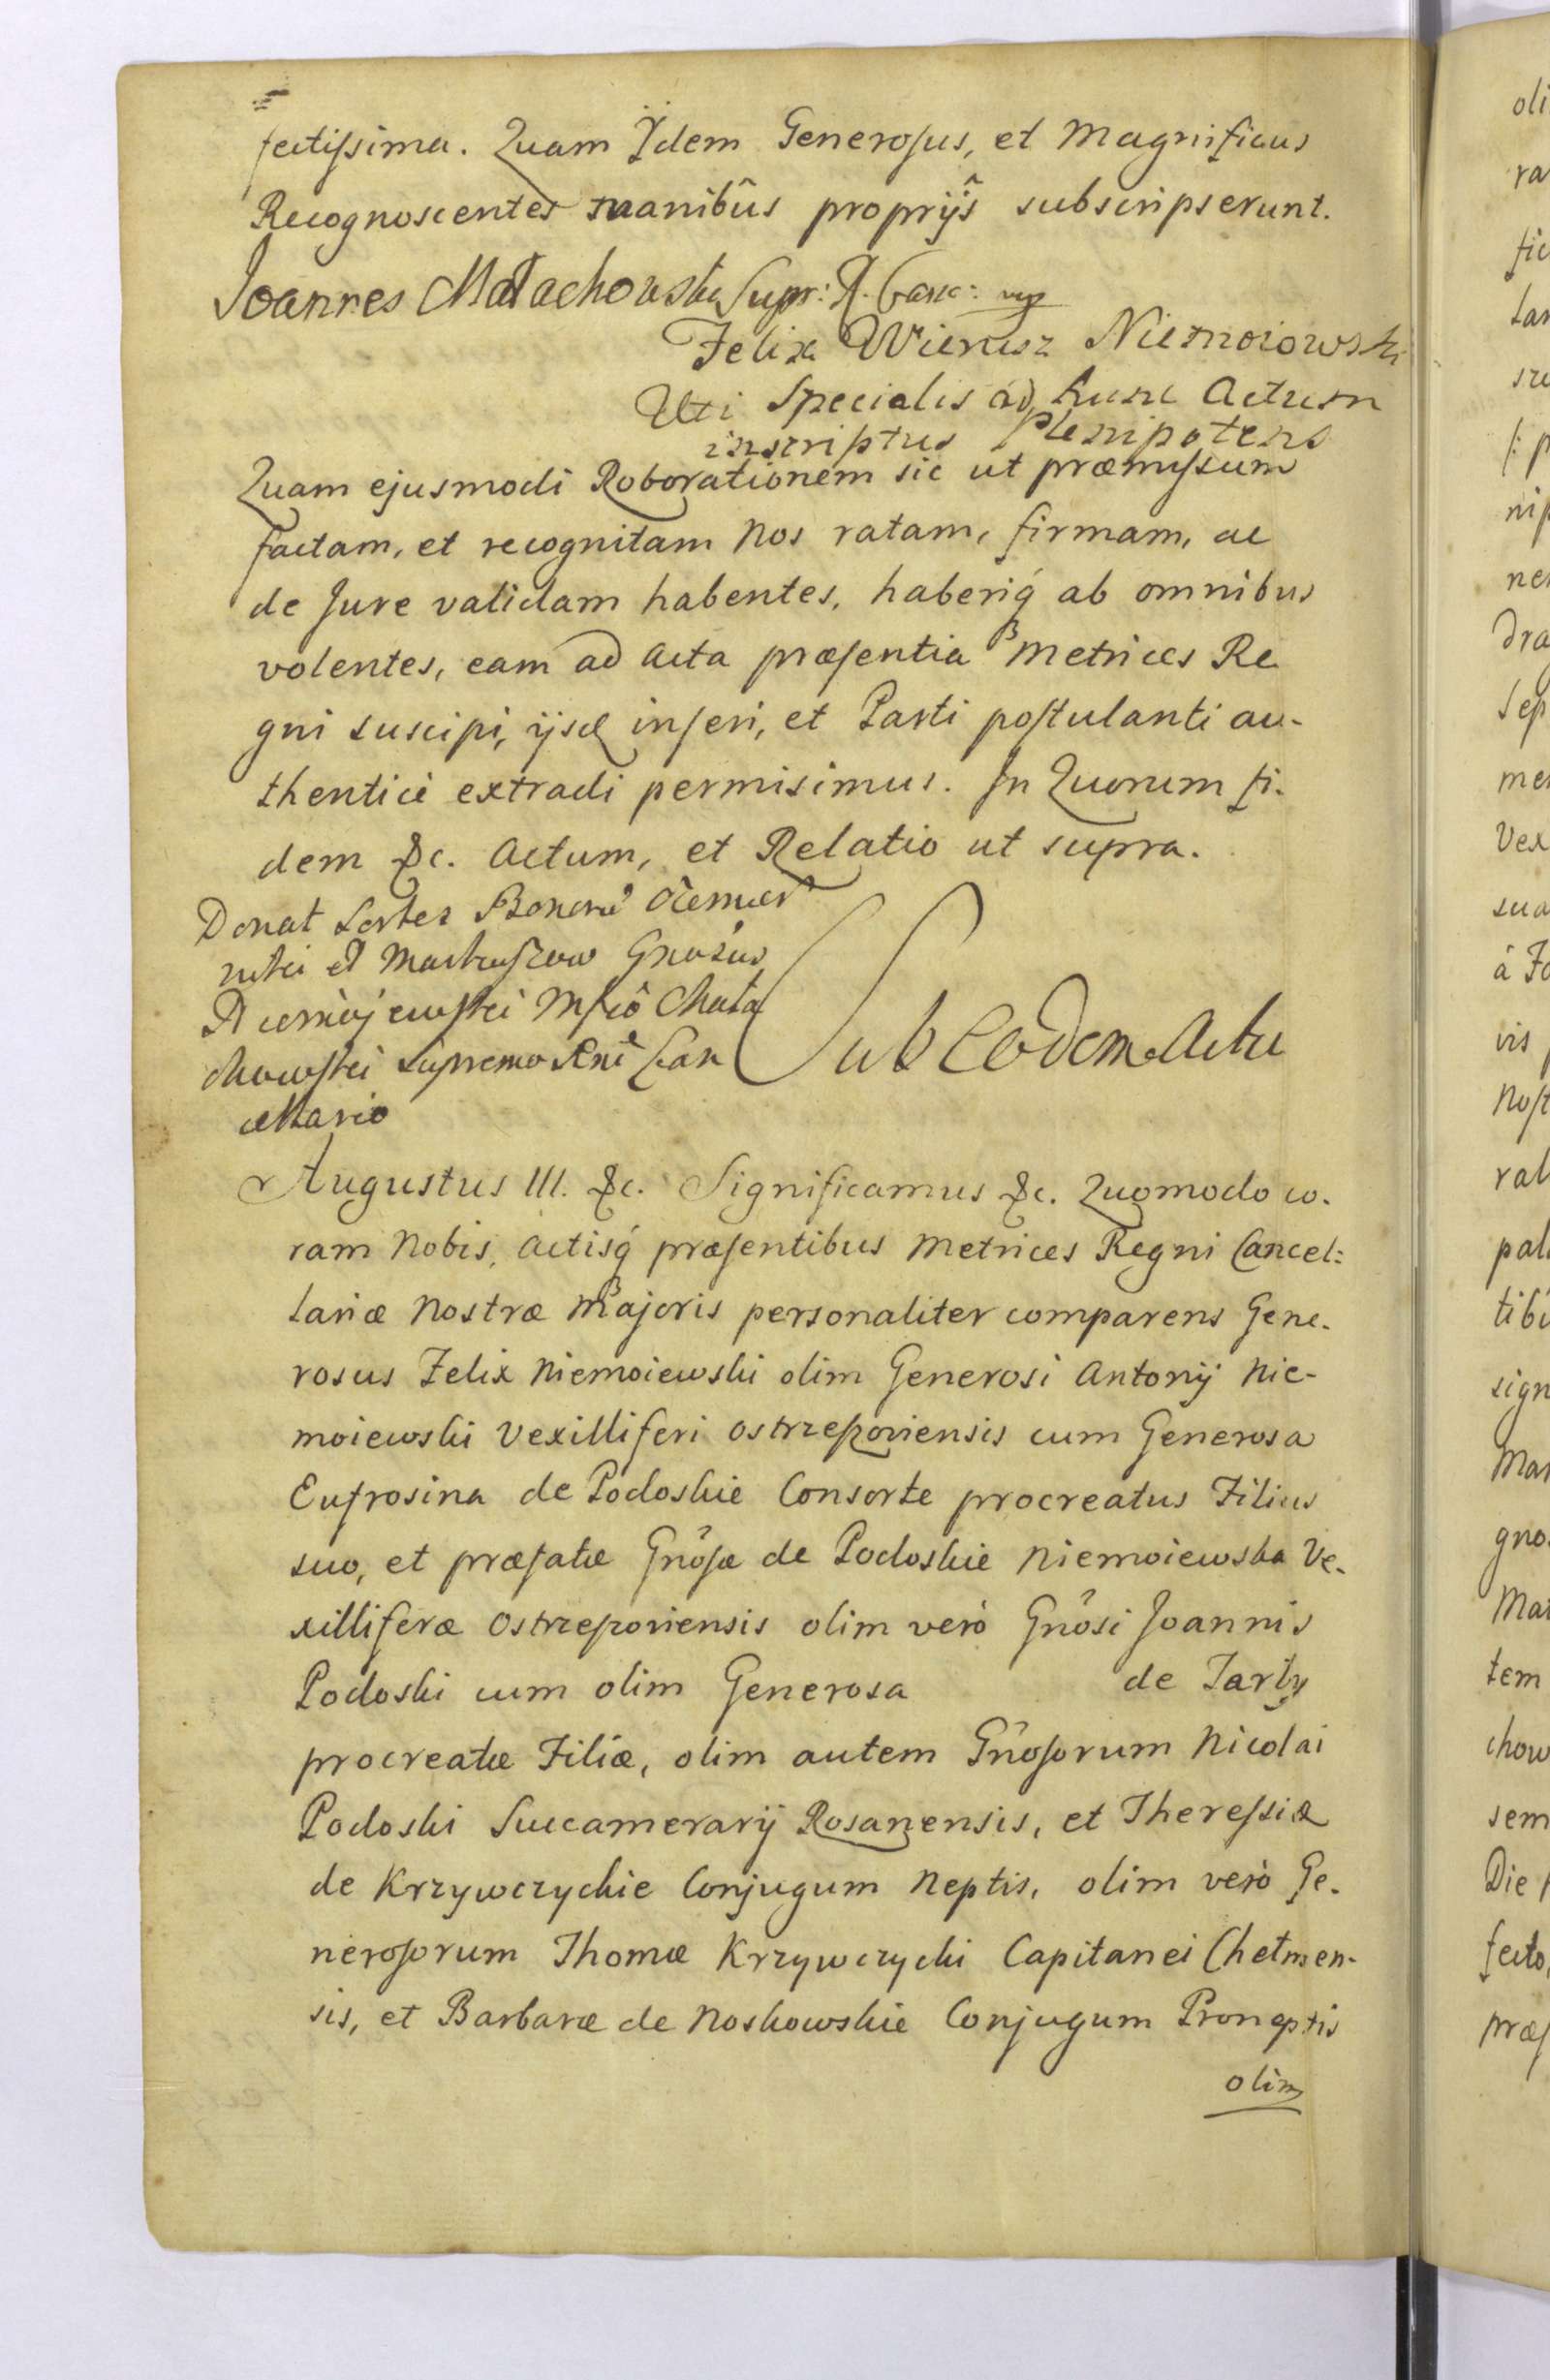 fectissima. Quam Ydem Generosus, et Magnificus
Recognoscentes manibûs proprijs subscripserunt.
Joannes Małachowski Supr: R. Canc: mp
Felix Wierusz Niemoiowski
Uti Specialis ad hunc Actum
inscriptus Plenipotens
Quam ejusmodi Roborationem sic ut præmissum
factam, et recognitam Nos ratam, firmam, ac
de Jure validam habentes, haberiq́ ab omnibus
volentes, eam ad Acta præsentia Metrices Re
gni suscipi, ijsd inseri, et Parti postulanti au-
thenticè extradi permisimus. In Quorum fi-
dem &c. Actum, et Relatio ut supra.
Donat Sortes Bonorũ
et Gnosus
Niemojewski Mfico Mała
chowski Supremo Rni Can
cellario
Sub Eodem Actu
Augustus III. &c. Significamus &c. Quomodo co-
ram Nobis, Actisq́ præsentibus Metrices Regni Cancel:
lariæ Nostræ Majoris personaliter comparens Gene-
rosus Felix Niemoiewski olim Generosi Antonij Nie-
moiewski Vexilliferi Ostrzeszoviensis cum Generosa
Eufrosina de Podoskie Consorte procreatus Filius
suo, et præfatæ Gnôsæ de Podoskie Niemoiewska Ve-
xilliferæ Ostrzeszoviensis olim verò Gnôsi Joannis
Podoski cum olim Generosa de Tarły
procreatæ Filiæ, olim autem Gnôsorum Nicolai
Podoski Succamerarij Rosanensis, et Theressiæ
de Krzywczyckie Conjugum Neptis, olim verò Ge-
nerosorum Thomæ Krzywczycki Capitanei Chełmen-
sis, et Barbaræ de Noskowskie Conjugum Proneptis
olim